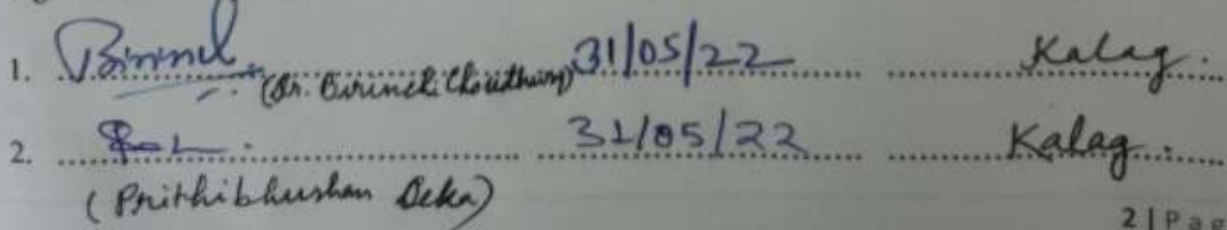 1. Birinchi (Dr. Birinchi Choudhury) 31/05/22 Kalag.
2. 31/05/22 Kalag.
(Prithibhushan Deka)
2 | Pag